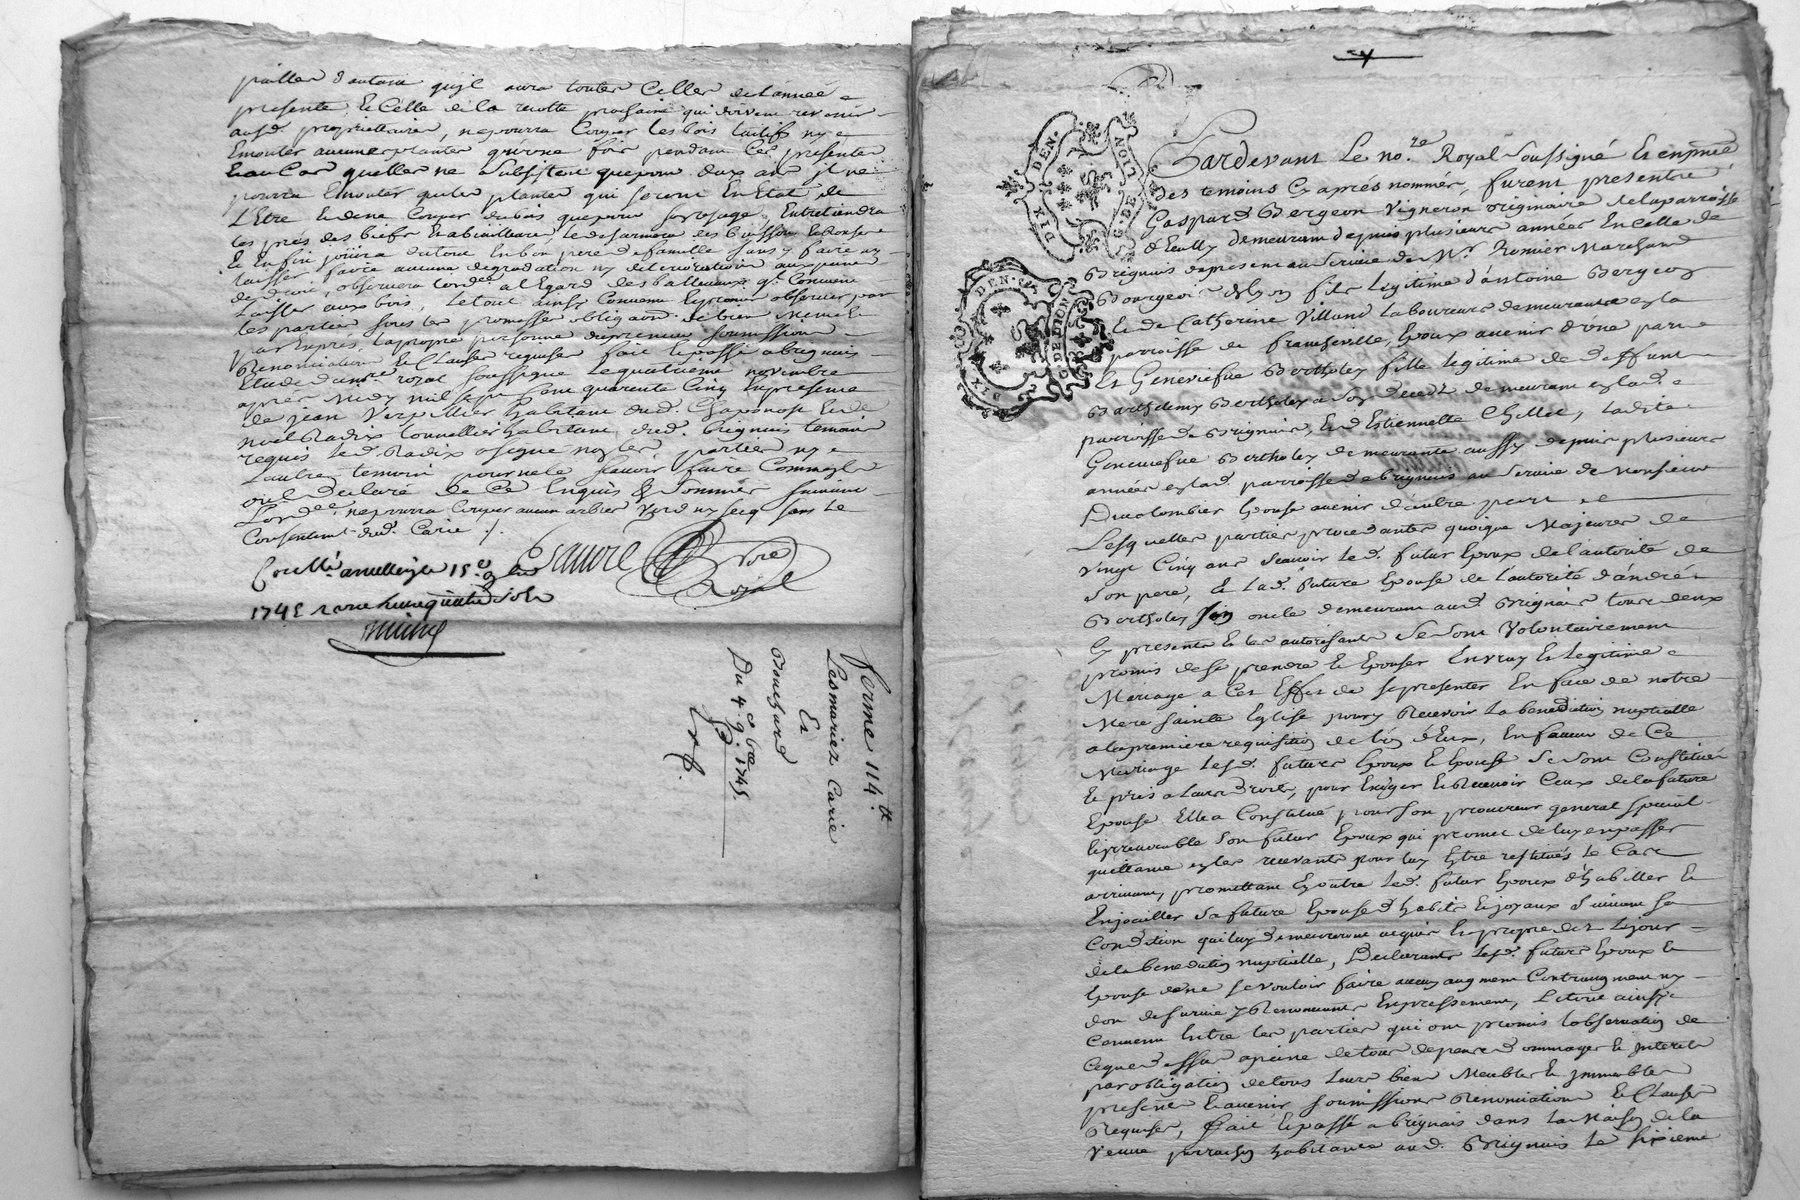 pailles d'autant qu'il aura toutes Celles de l'année
presente, Et Celle de la recolte prochaine qui doivent revenir
aud. proprietaire, ne pourra Couper les bois taillifs ny
Emonter aucunes plantes qu'une fois pendant Ces presentes
Et au Cas quelles ne Subsistent que pour deux ans il ne
pourra Emonter que les plantes qui seront En Etat de
L'Etre Et de ne Couper du bois que pour son usage, Entretiendra
les prés des biefs
Et Enfin jouira du tout En bon pere de famille sans y faire ny
laisser faire aucune degradation ny deterioration aux peines
de droit, observera
Laisser aux bois, Le tout ainsy Convenu Et promis observer par
les parties sous les promesses obligaon. de biens
Renonciation Et Clauses requises fait Et passé a brignais
Etude dud. nore. royal soussigné le quatrieme novembre
apres midy mil sept Cent quarente Cinq En presence
de jean Verpillier habitant dud. Chaponost Et de
noel Radix tonnellier habitant dud. brignais temoins
requis led. Radix a signé non les parties ny
L'autre temoin pour ne le sçavoir faire Comme ils
ont declaré de Ce Enquis & Sommés suivant
L'ordce. ne pourra Couper aucun arbre Verd ny secq sans le
Consentemt. dud. Carie ./.
15e
1745
nore
Royal
ferme 114tt
Les mariez Carie
Et
Bouchard
Du 4e 9bre
1745.
Pardevant Le nore. Royal Soussigné Et en pnce
des temoins Cy aprés nommés, furent presents
Gaspard Bergeon Vigneron originaire de la parroisse
d'Eully demeurant depuis plusieurs années En celle de
Brignais de present au Service de Mr. Romier Marchand
Bourgeois de Lyon fils Legitime d'antoine Bergeon
Et de Catherine Villand Laboureurs demeurants
parroisse de francheville, Epoux avenir d'une part
Et Geneviefve Bertholey fille Legitime de deffunt
Barthelemy Bertholey a son decedz demeurant
parroisse de Brignais, Et d'Estiennette Chillet, Ladite
Geneviefve Bertholey demeurante aussy depuis plusieurs
années parroisse de brignais au Service de Monsieur
Ducolombier Epouse avenir d'autre part
Lesquelles parties procedantes quoique Majeures de
Vingt Cinq ans sçavoir led. futur Epoux de l'autorité de
Son pere, Et lad. future Epouse de l'autorité d'andré
Bertholey son oncle demeurant aud. Brignais tous deux
Cy presents Et les autorisants Se sont Volontairement
promis de se prendre Et Epouser En vray Et Legitime
Mariage a Cet Effet de se presenter En face de notre
Mere Sainte Eglise pour y Recevoir La benediction nuptialle
a la premiere requisition de l'un d'Eux, En faveur de Ce
Mariage lesd. futurs Epoux Et Epouse Se sont Constitués
Et pris a Leurs droits, pour Exiger Et Recevoir Ceux de la future
Epouse Elle a Constitué pour son procureur general special
Et irrevocable Son futur Epoux qui promet de luy en passer
quittance En les recevants pour luy Etre restitués le Cas
arrivant, promettant En outre led. futur Epoux d'habiller Et
Enjoailler Sa future Epouse d'habits Et joyaux Suivant sa
Condition qui luy demeureront acquis En propre dez Le jour
de la benediction nuptialle, Declarants lesd. futurs Epoux Et
Epouse de ne se vouloir faire aucun augment Contraugment ny
don de survie y Renonceants Expressement, Le tout ainsy
Convenu Entre les parties qui ont promis l'observation de
Ce que dessus a peine de tous depens dommages Et Interets
par obligation de tous Leurs biens Meubles Et Immeubles
presents Et avenir soumissions Renonciations Et Clauses
Requises, fait Et passé a brignais dans La Maison de la
Veuve habitante aud. Brignais le sixieme